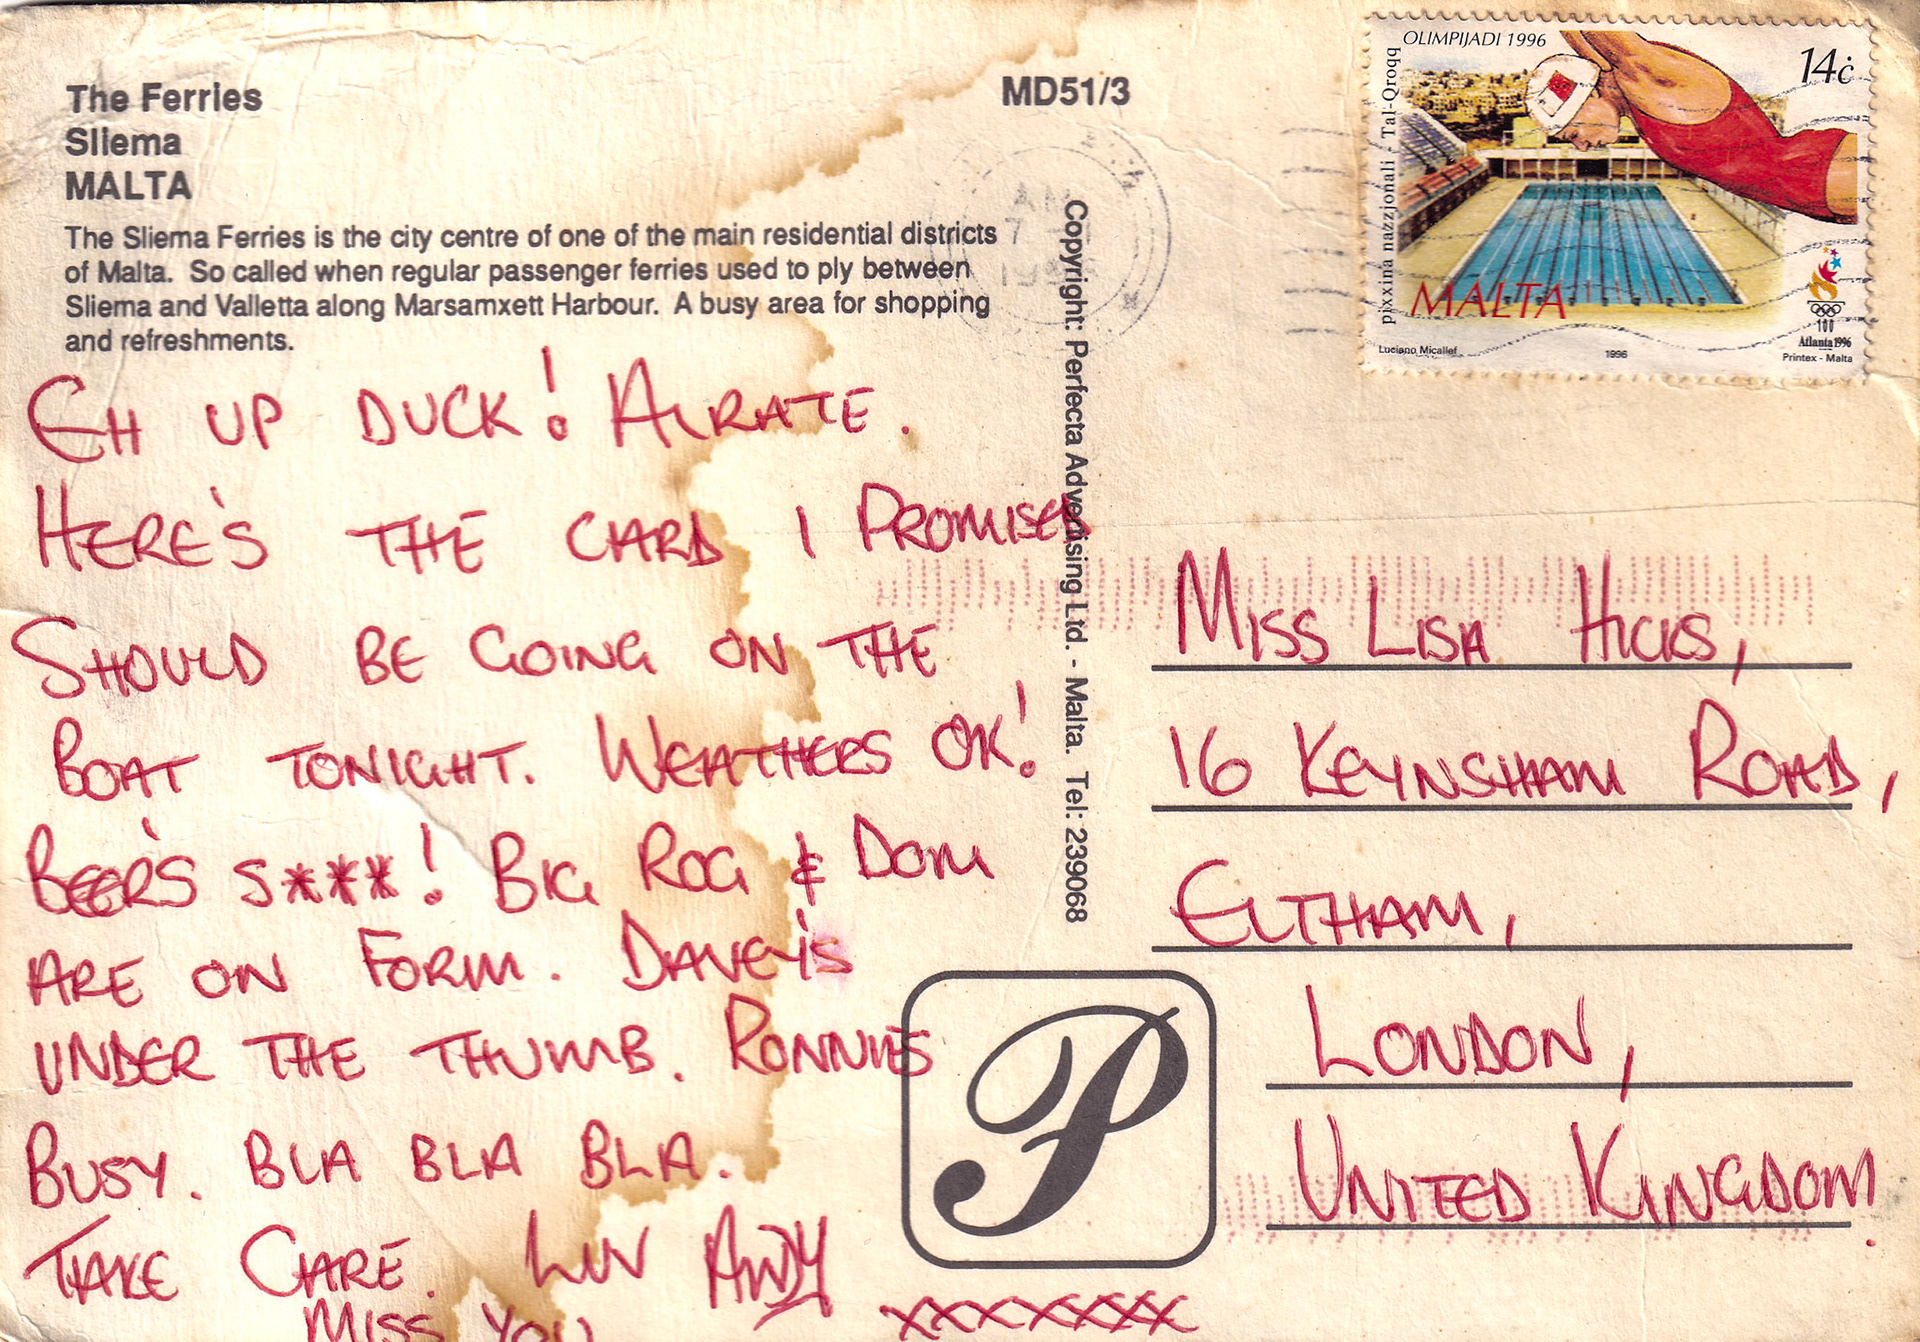 The Ferries
Sliema
MALTA
The Sliema Ferries is the city centre of one of the main residential districts
of Malta. So called when regular passenger ferries used to ply between
Sliema and Valletta along Marsamxett Harbour. A busy area for shopping
and refreshments.
MD51/3
EH UP DUCK! ALRATE.
HERE'S THE CARD I PROMISED
SHOULD BE GOING ON THE
BOAT TONIGHT. WEATHERS OK!
BEER'S S***! BIG ROG & DOM
ARE ON FORM. DAVEY'S
UNDER THE THUMB. RONNIES
BUSY. BLA BLA BLA.
TAKE CARE. LUV ANDY
MISS YOU XXXXXXX
Copyright: Perfecta Advertising Ltd. - Malta. Tel: 239068
P
OLIMPIJADI 1996
14ċ
pixxina nazzjonali / Tal-Qroqq
MALTA
100
Atlanta 1996
Luciano Micallef
1996
Printex - Malta
MISS LISA HICKS,
16 KEYNSHAM ROAD,
ELTHAM,
LONDON,
UNITED KINGDOM.